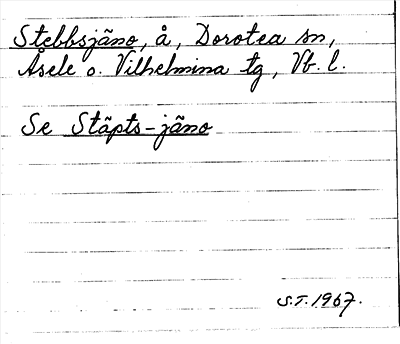 Stebbsjãno, å, Dorotea sn,
Åsele o. Vilhelmina tg, Vb. l.
Se Stãpts-jãno
S.T. 1967.